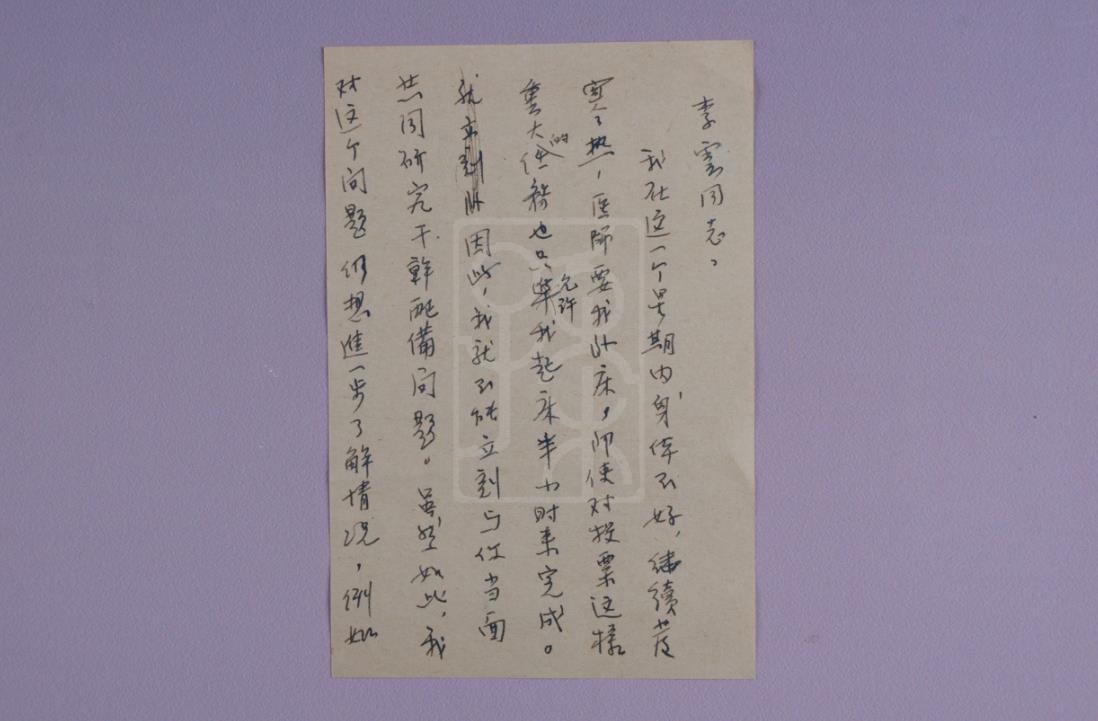 李雲同志。
我在这一个星期内,身体不好,继續发
寒热,医师要我卧床,即使对投票这样
重大的任務也只準允许我起床半小时来完成。
因此,我就不能立刻与你当面
共同研究干幹配備问题。虽然如此,我
对这个问题仍想進一步了解情况,例如